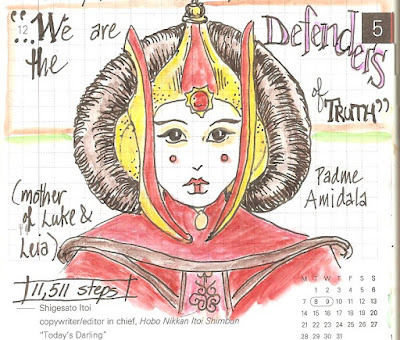 12
5
"...We are
the
Defenders
of TRUTH"
(mother
of Luke &
Leia)
Padme
Amidala
11,511 steps
Shigesato Itoi
copywriter/editor in chief, Hobo Nikkan Itoi Shimbun
"Today's Darling"
M T W T F S S
1 2 3 4 5 6
7 8 9 10 11 12 13
14 15 16 17 18 19 20
21 22 23 24 25 26 27
28 29 30 31